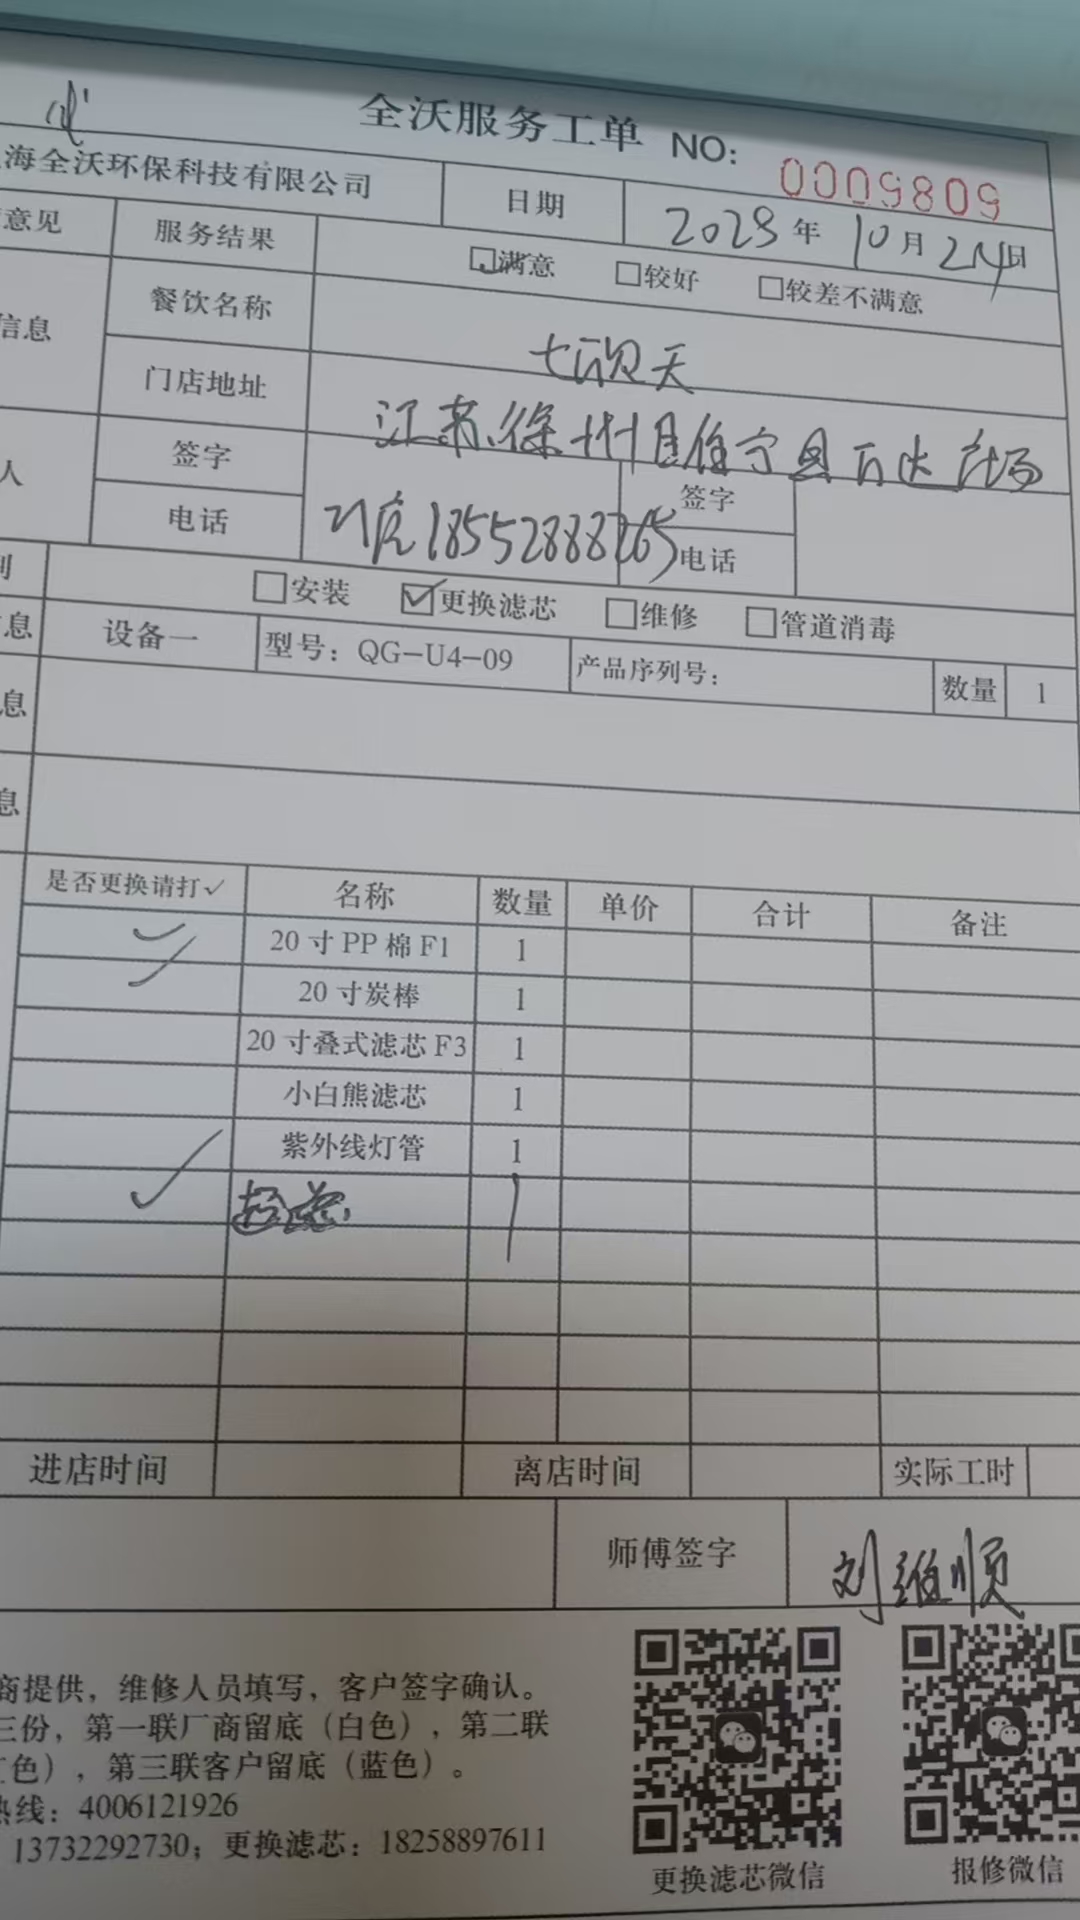 全沃服务工单 NO: 0009809
海全沃环保科技有限公司 日期 2023年10月24日
意见 服务结果 满意 较好 较差不满意
信息 餐饮名称 七欣天
门店地址 江苏徐州睢宁县万达广场
人 签字 签字
电话 18552888265 电话
别 安装 更换滤芯 维修 管道消毒
息 设备一 型号：QG-U4-09 产品序列号： 数量 1
息
息
是否更换请打✓ 名称 数量 单价 合计 备注
✓ 20寸PP棉F1 1
✓ 20寸炭棒 1
20寸叠式滤芯F3 1
小白熊滤芯 1
紫外线灯管 1
✓ 1
进店时间 离店时间 实际工时
师傅签字 刘维顺
商提供，维修人员填写，客户签字确认。
三份，第一联厂商留底（白色），第二联
色），第三联客户留底（蓝色）。
热线：4006121926
13732292730；更换滤芯：18258897611
更换滤芯微信 报修微信